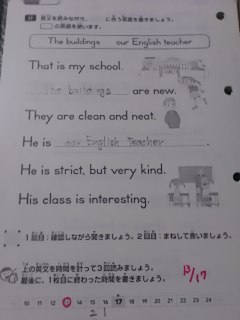 英文を読みながら、 に合う英語を書きましょう。
の英語を使います。
The buildings our English teacher
That is my school.
The buildings are new.
They are clean and neat.
He is our English teacher .
He is strict, but very kind.
His class is interesting.
1回目：確認しながら聞きましょう。2回目：まねして言いましょう。
上の英文を時間を計って3回読みましょう。
最後に、1枚目に終わった時間を書きましょう。
10 11 12 13 14 15 16 17 18 19 20 21 22 23 24
21